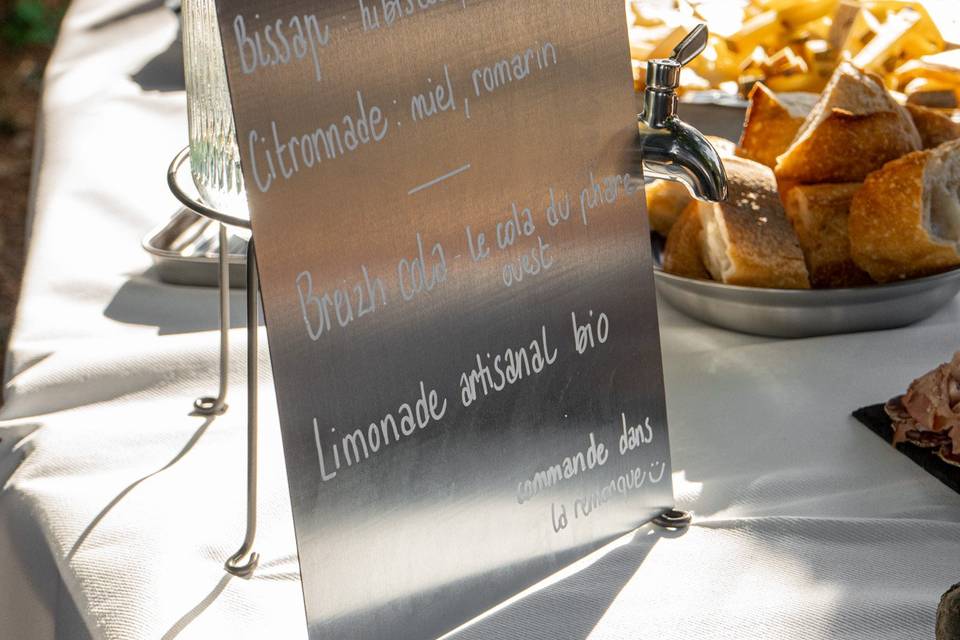 Bissap : hibiscus
Citronnade : miel, romarin
Breizh cola - le cola du phare
ouest
Limonade artisanal bio
commande dans
la remorque :)